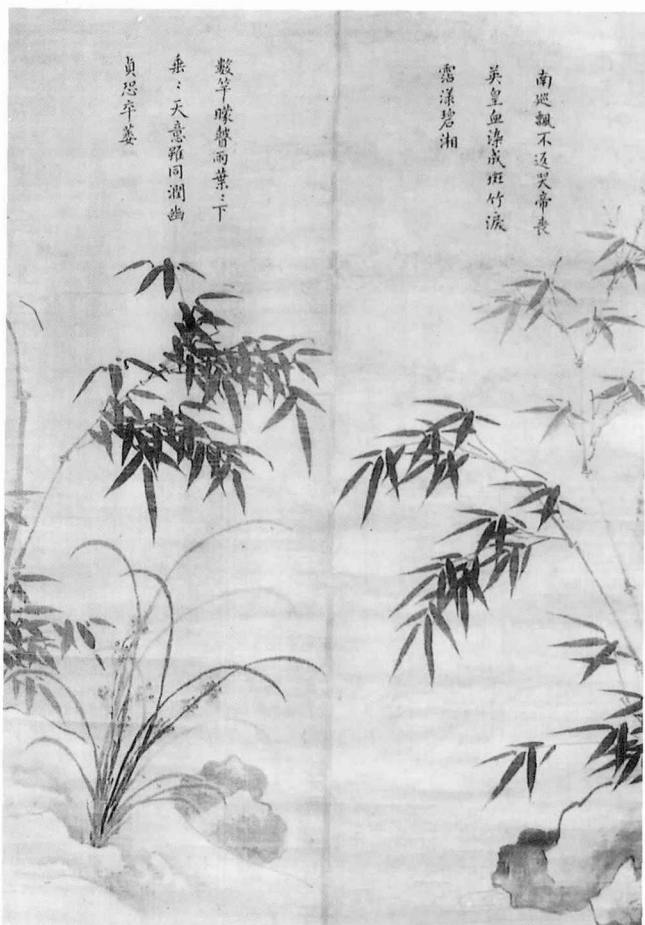 南巡飄不返哭帝喪
英皇血染成斑竹淚
露漾碧湘
數竿矇瞽雨葉〻下
垂〻天意雖同潤幽
貞恐卒萎